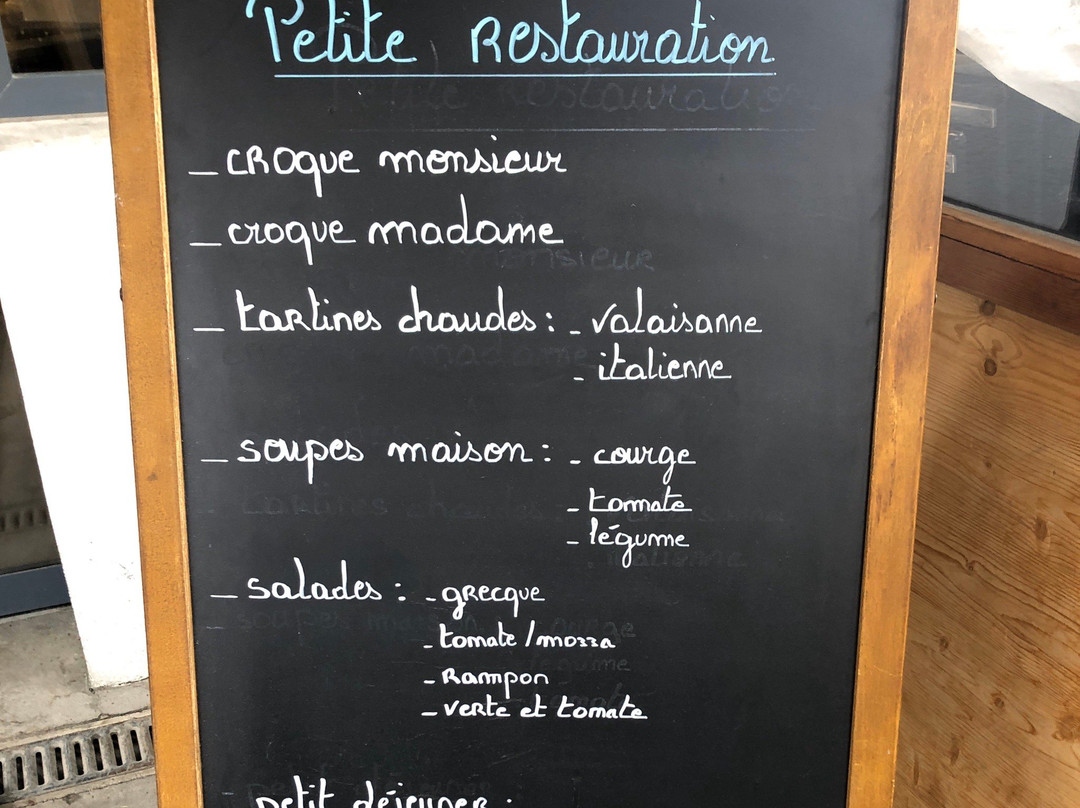 Petite Restauration
_ croque monsieur
_ croque madame
_ tartines chaudes : - valaisanne
- italienne
_ soupes maison : - courge
- tomate
- légume
_ salades : - grecque
- tomate / mozza
- Rampon
- verte et tomate
petit déjeuner :